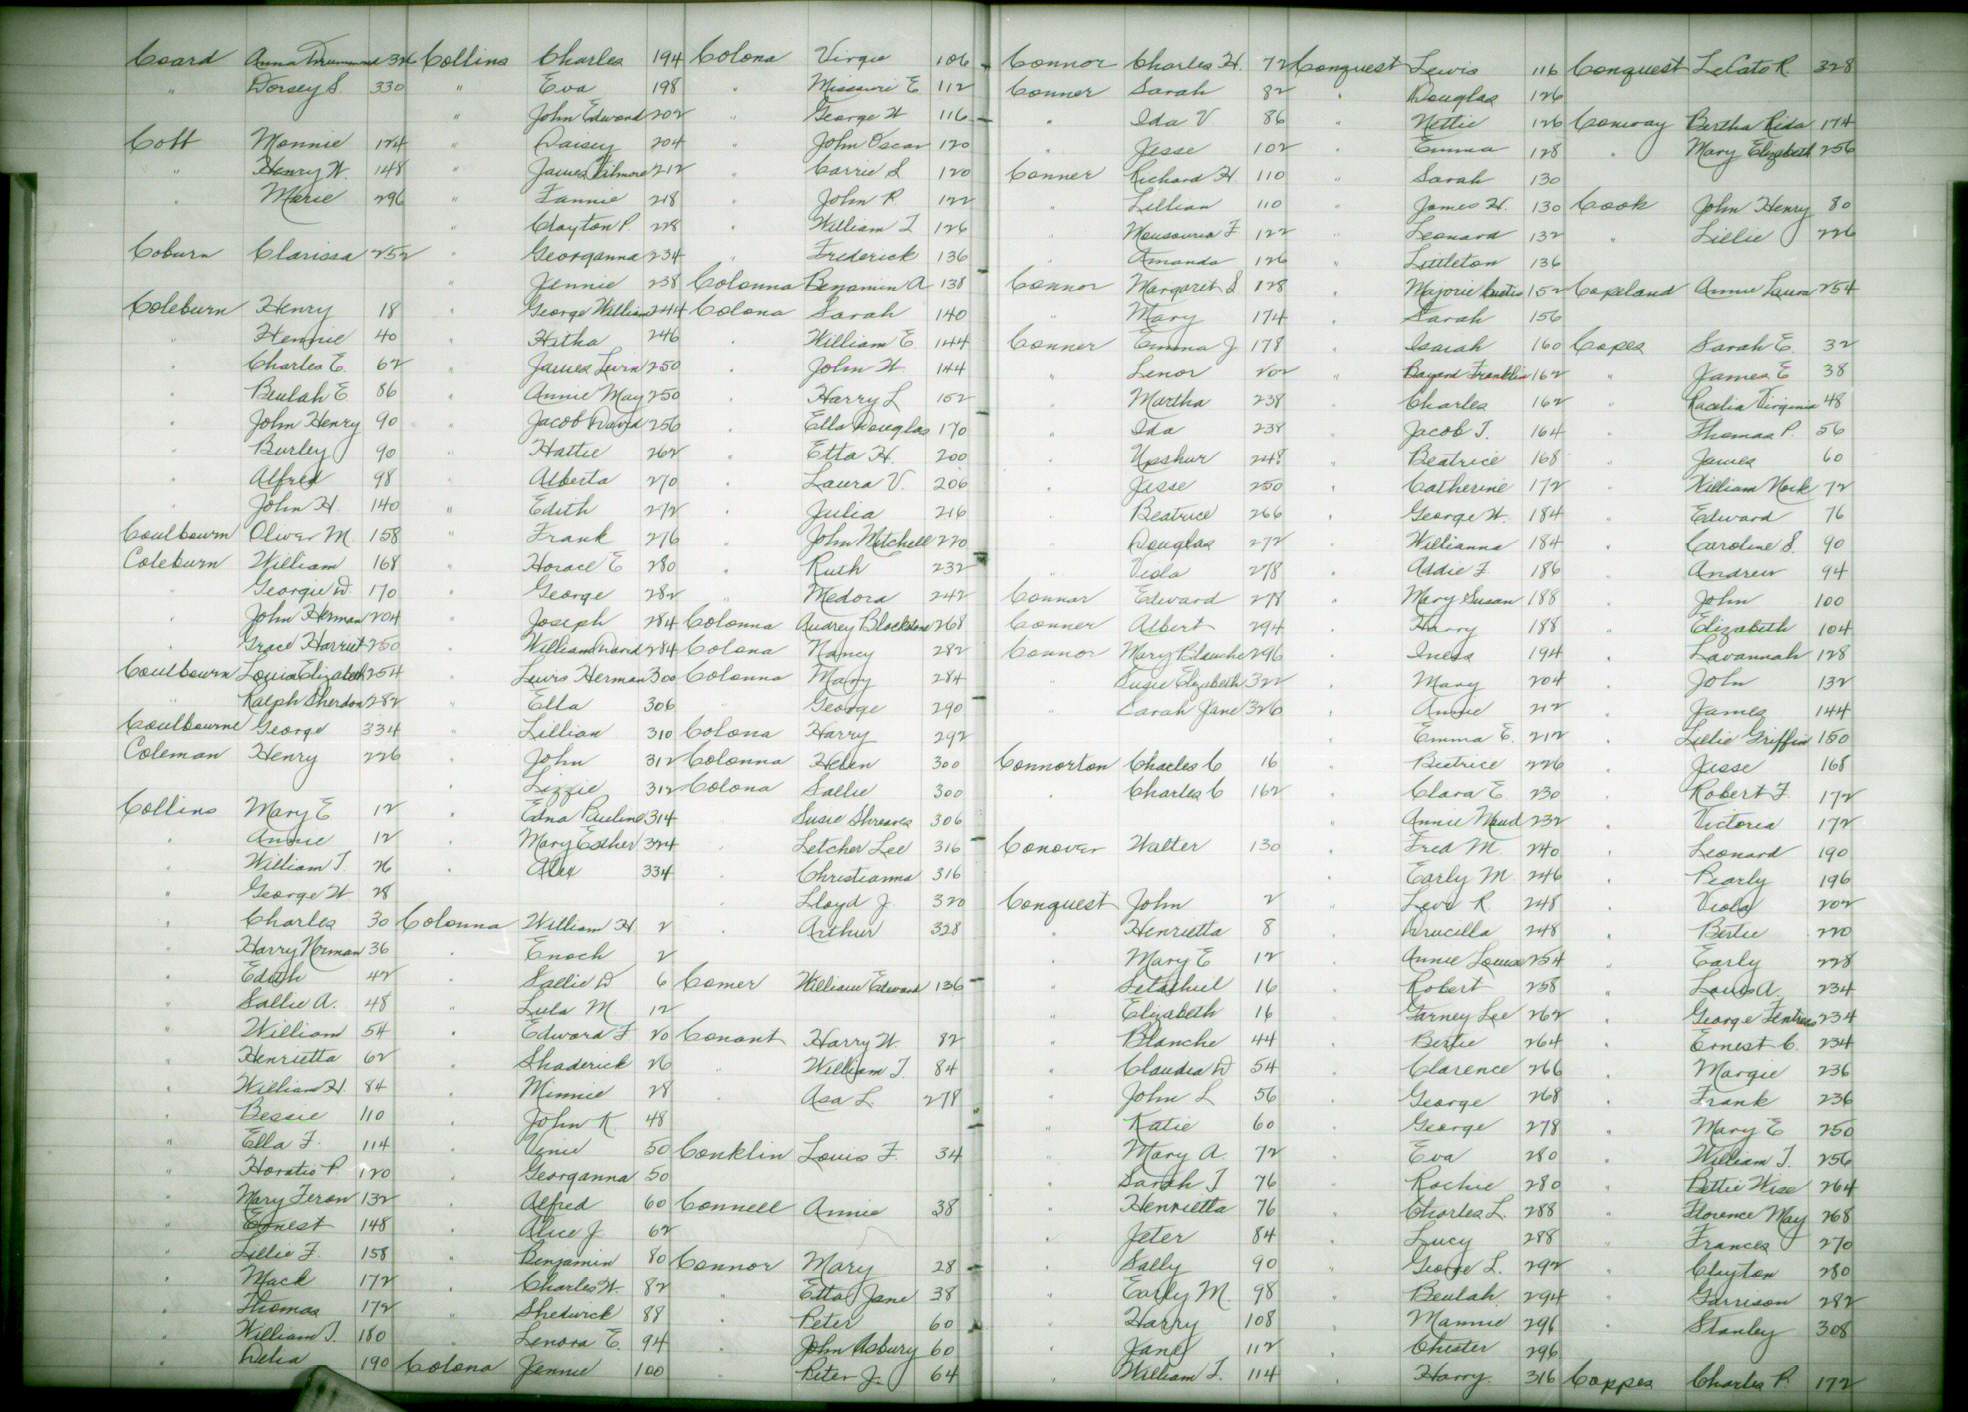 Coard Anna Drummond 326
" Dorsey S. 330
Cobb Mannie 124
" Henry W. 148
" Marie 296
Coburn Clarissa 252
Coleburn Henry 18
" Hennie 40
" Charles E. 62
" Beulah E 86
" John Henry 90
" Burley 90
" Alfred 98
" John H. 140
Coulbourn Oliver M. 158
Coleburn William 168
" Georgie W. 170
" John Herman 204
" Grace Harriet 250
Coulbourn Louisa Elizabeth 254
" Ralph Sherdon 282
Coulbourne George 334
Coleman Henry 226
Collins Mary E 12
" Annie 12
" William T. 26
" George W. 28
" Charles 30
" Harry Norman 36
" Edith 42
" Sallie A. 48
" William 54
" Henrietta 62
" William H. 84
" Bessie 110
" Ella F. 114
" Horatio P. 120
" Mary Feron 132
" Ernest 148
" Lillie F. 158
" Mack 172
" Thomas 172
" William T. 180
" Delia 190
Collins Charles 194
" Eva 198
" John Edward 202
" Daisey 204
" James Wilmore 212
" Fannie 218
" Clayton P. 228
" Georganna 234
" Jennie 238
" George William 244
" Hetha 246
" James Levin 250
" Annie May 250
" Jacob David 256
" Hattie 262
" Alberta 270
" Edith 272
" Frank 276
" Horace E 280
" George 282
" Joseph 284
" William David 284
" Lewis Herman 300
" Ella 306
" Lillian 310
" John 312
" Lizzie 312
" Edna Pauline 314
" Mary Esther 324
" Alex 334
Colonna William H 2
" Enoch 2
" Sallie W 6
" Lula M 12
" Edward F. 20
" Shaderick 26
" Minnie 28
" John K. 48
" Venie 50
" Georganna 50
" Alfred 60
" Alice J. 62
" Benjamin 80
" Charles W. 82
" Shedwick 88
" Lenora E. 94
Colona Jennie 100
Colona Virgie 106
" Missouri E. 112
" George W 116
" John Oscar 120
" Carrie S 120
" John R 122
" William T 126
" Frederick 136
Colonna Benjamin A 138
Colona Sarah 140
" William E 144
" John W. 144
" Harry L 152
" Ella Douglas 170
" Etta H. 200
" Laura V. 206
" Julia 216
" John Mitchell 220
" Ruth 232
" Medora 242
Colonna Audrey Blackstone 268
Colona Nancy 282
Colonna Mary 284
" George 290
Colona Harry 292
Colonna Helen 300
Colona Sallie 300
Susie Shreaves 306
" Letcher Lee 316
" Christianna 316
" Lloyd J. 320
" Arthur 328
Comer William Edward 136
Conant Harry W. 82
" William T. 84
" Asa L 278
Conklin Louis F. 34
Connell Annie 38
Connor Mary 28
" Etta Jane 38
" Peter 60
" John Asbury 60
" Peter J. 64
Connor Charles H. 72
Conner Sarah 82
" Ida V 86
" Jesse 102
Conner Richard H. 110
" Lillian 110
" Missouria F. 122
" Amanda 126
Connor Margaret S 128
" Mary 174
Conner Emma J. 178
" Lenor 202
" Martha 238
" Ida 238
" Upshur 248
" Jesse 250
" Beatrice 266
" Douglas 272
" Viola 278
Connor Edward 278
Conner Albert 294
Connor Mary Blanche 296
" Susie Elizabeth 322
" Sarah Jane 326
Connorton Charles C 16
" Charles C 162
Conover Walter 130
Conquest John 2
" Henrietta 8
" Mary E 12
" 16
" Elizabeth 16
" Blanche 44
" Claudia W 54
" John L 56
" Katie 60
" Mary A. 72
" Sarah T 76
" Henrietta 76
" Jeter 84
" Sally 90
" Early M. 98
" Harry 108
" Jane 112
" William T. 114
Conquest Lewis 116
" Douglas 126
" Nettie 126
" Emma 128
" Sarah 130
" James H. 130
" Leonard 132
" Littleton 136
" Marjorie Custis 152
" Sarah 156
" Isaiah 160
" Bayard Franklin 162
" Charles 162
" Jacob T. 164
" Beatrice 168
" Catherine 172
" George W. 184
" Willianna 184
" Addie F. 186
" Mary Susan 188
" Harry 188
" Iness 194
" Mary 204
" Annie 212
" Emma E. 212
" Beatrice 226
" Clara E. 230
" Annie Maud 232
" Fred M. 240
" Early M. 246
" Levi R 248
" Drucilla 248
" Annie Louise 254
" Robert 258
" Garney Lee 262
" Bertie 264
" Clarence 266
" George 268
" George 278
" Eva 280
" Rachie 280
" Charles L. 288
" Lucy 288
" George L. 292
" Beulah 294
" Mannie 296
" Chester 296
" Harry. 316
Conquest LeCato R. 328
Conway Bertha Rida 174
" Mary Elizabeth 256
Cook John Henry 80
" Lillie 226
Copeland Annie Laura 254
Copes Sarah E. 32
" James E 38
" Virginia 48
" Thomas P. 56
" James 60
" William Nock 72
" Edward 76
" Caroline S. 90
" Andrew 94
" John 100
" Elizabeth 104
" Savannah 128
" John 132
" James 144
" Lillie Griffin 150
" Jesse 168
" Robert F. 172
" Victoria 172
" Leonard 190
" Pearly 196
" Viola 202
" Bertie 220
" Early 228
" Louis A. 234
" George Fentress 234
" Ernest C. 234
" Margie 236
" Frank 236
" Mary E 250
" William T. 256
" Bettie Wise 264
" Florence May 268
" Frances 270
" Clayton 280
" Garrison 282
" Stanley 308
Coppes Charles P. 172